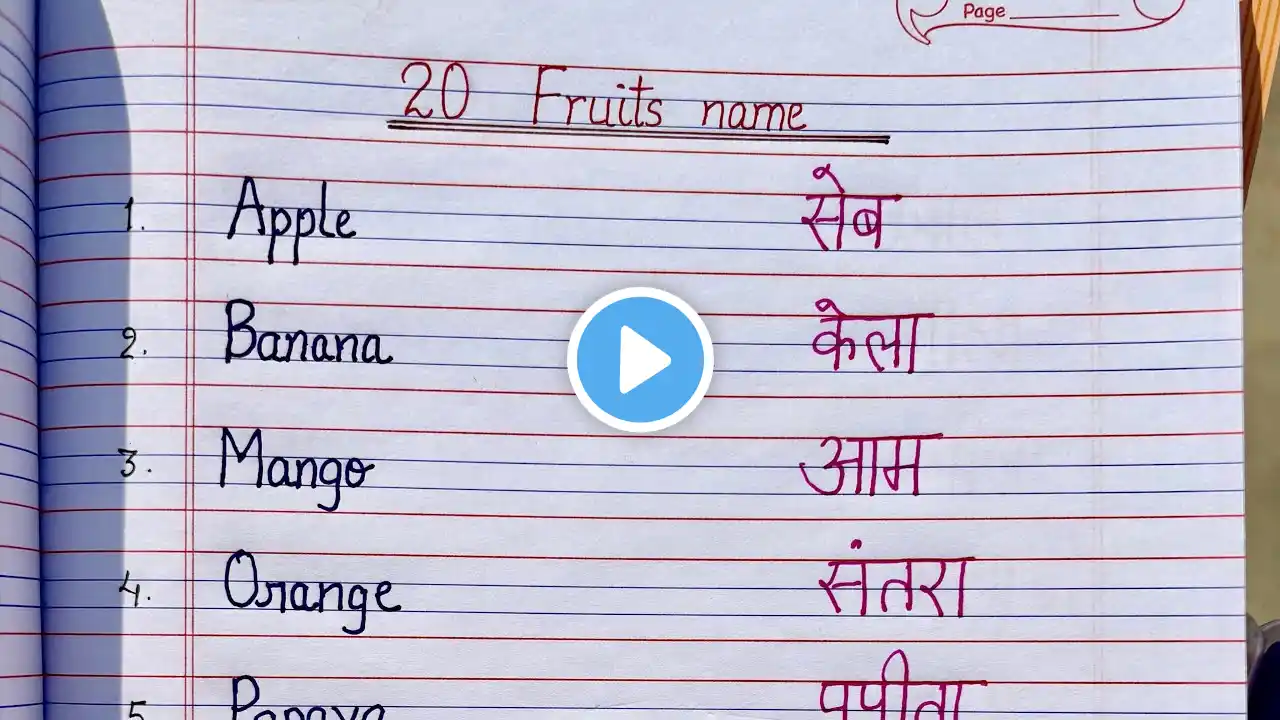 Page
20 Fruits name
1. Apple सेब
2. Banana केला
3. Mango आम
4. Orange संतरा
5. Papaya पपीता